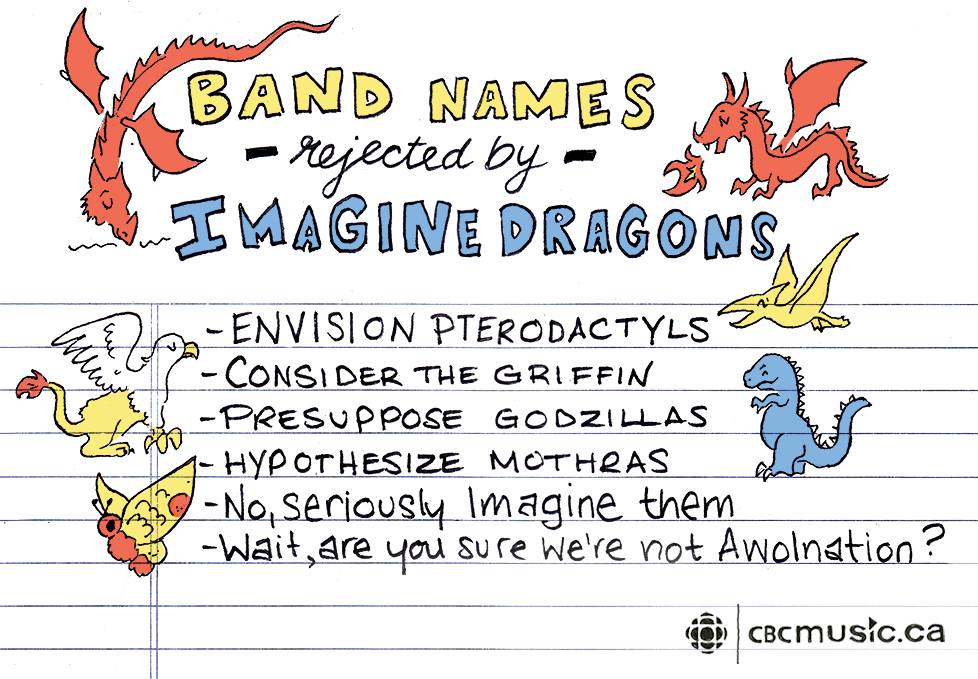 BAND NAMES
- rejected by -
IMAGINE DRAGONS
- ENVISION PTERODACTYLS
- CONSIDER THE GRIFFIN
- PRESUPPOSE GODZILLAS
- HYPOTHESIZE MOTHRAS
- No, seriously Imagine them
- Wait, are you sure we're not Awolnation?
CBCmusic.ca